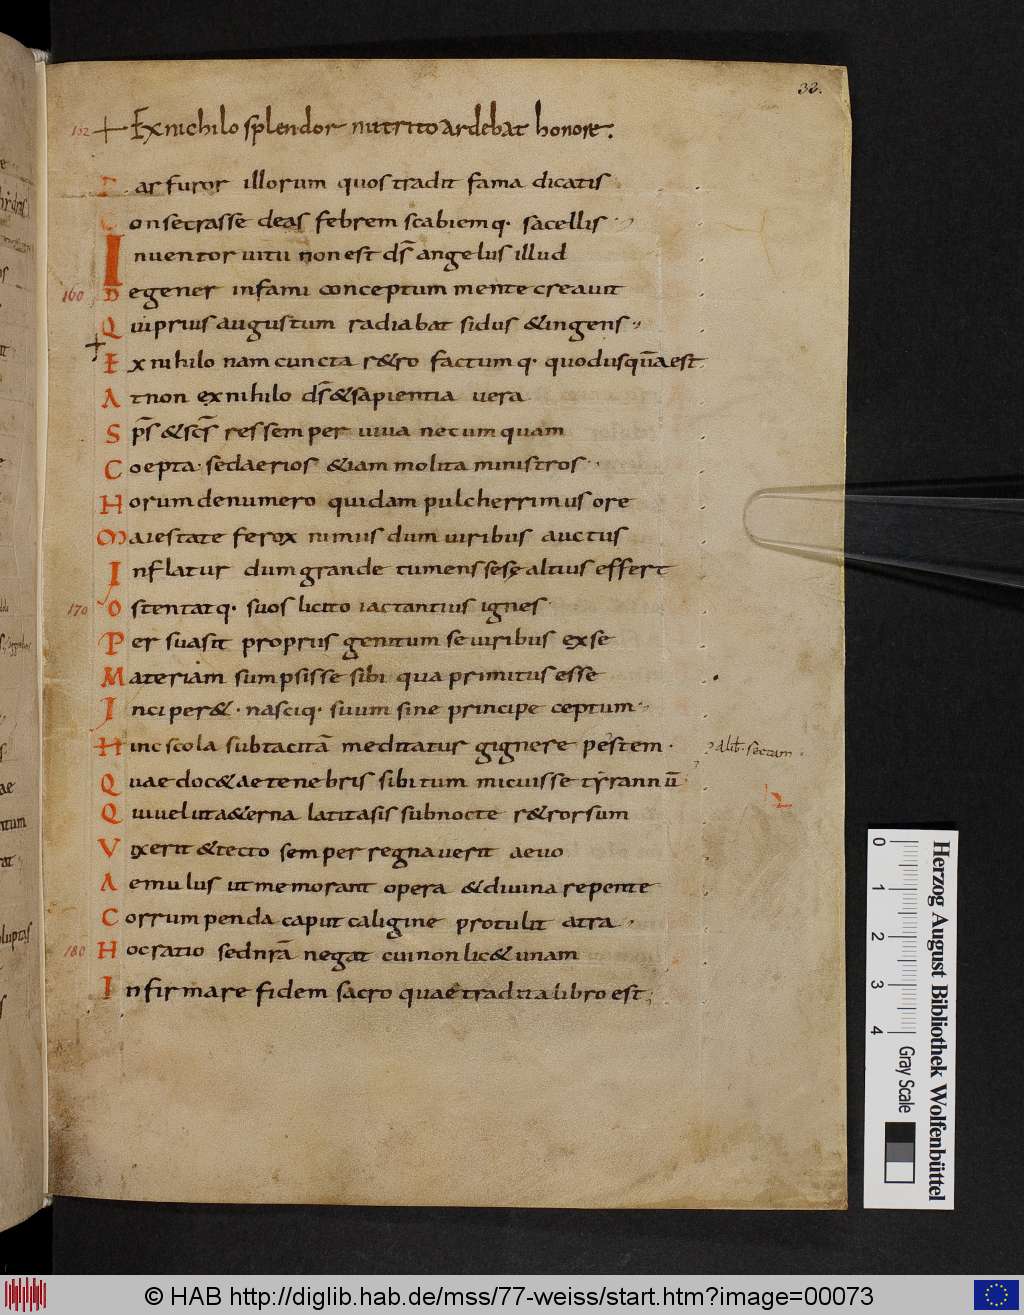 33.
162 Ex nichilo splendor nutrito ardebat honore.
Par furor illorum quos tradit fama dicatis
Consecrasse deas febrem scabiemq· sacellis
Inventor vitii non est ds̄ angelus illud
160 Degener infami conceptum mente creavit
Qui prius augustum radiabat sidus & ingens
Ex nihilo nam cuncta r&ro factum q· quod usquā est
At non ex nihilo ds̄ & sapientia vera
Sps̄ & scs̄ res semper viva nec umquam
Coepta· sed aerios &iam molita ministros·
Horum de numero quidam pulcherrimus ore
Maiestate ferox nimius dum viribus auctus
Inflatur dum grande tumens sese altius effert
170 Ostentatq· suos licito iactantius ignes
Persuasit proprius genitum se viribus ex se
Materiam sumpsisse sibi qua primitus esse
Inciper&· nasciq· suum sine principe ceptum
Hinc scola subtacitā meditatur gignere pestem· Alib· sectam
Quae doc& ae tenebris sibitum micuisse tyrannū
Qui velut a&erna latitasis sub nocte r&rorsum
Vixerit & tecto semper regnaverit aevo
Aemulus ut memorant opera & divina repente
Corrumpenda caput caligine protulit atra
180 Hoc ratio sed nrā negat cui non lic& unam
Infirmare fidem sacro quae tradita libro est
Herzog August Bibliothek Wolfenbüttel
0 1 2 3 4 Gray Scale
© HAB http://diglib.hab.de/mss/77-weiss/start.htm?image=00073